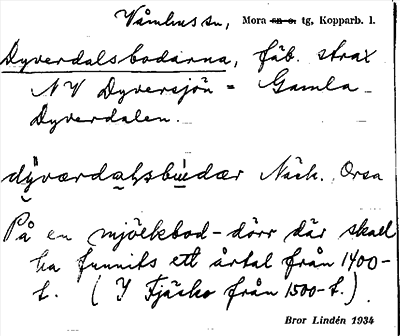 Våmhus sn, Mora sn o. tg, Kopparb. l.
Dyverdalsbodarna, fäb. strax
NV Dyversjön = Gamla
Dyverdalen.
dȳværdaḷsbu̇dær Näsk. Orsa
På en mjölkbod-dörr där skall
ha funnits ett årtal från 1400-
t. (I Fjäsko från 1500-t.)
Bror Lindén 1934